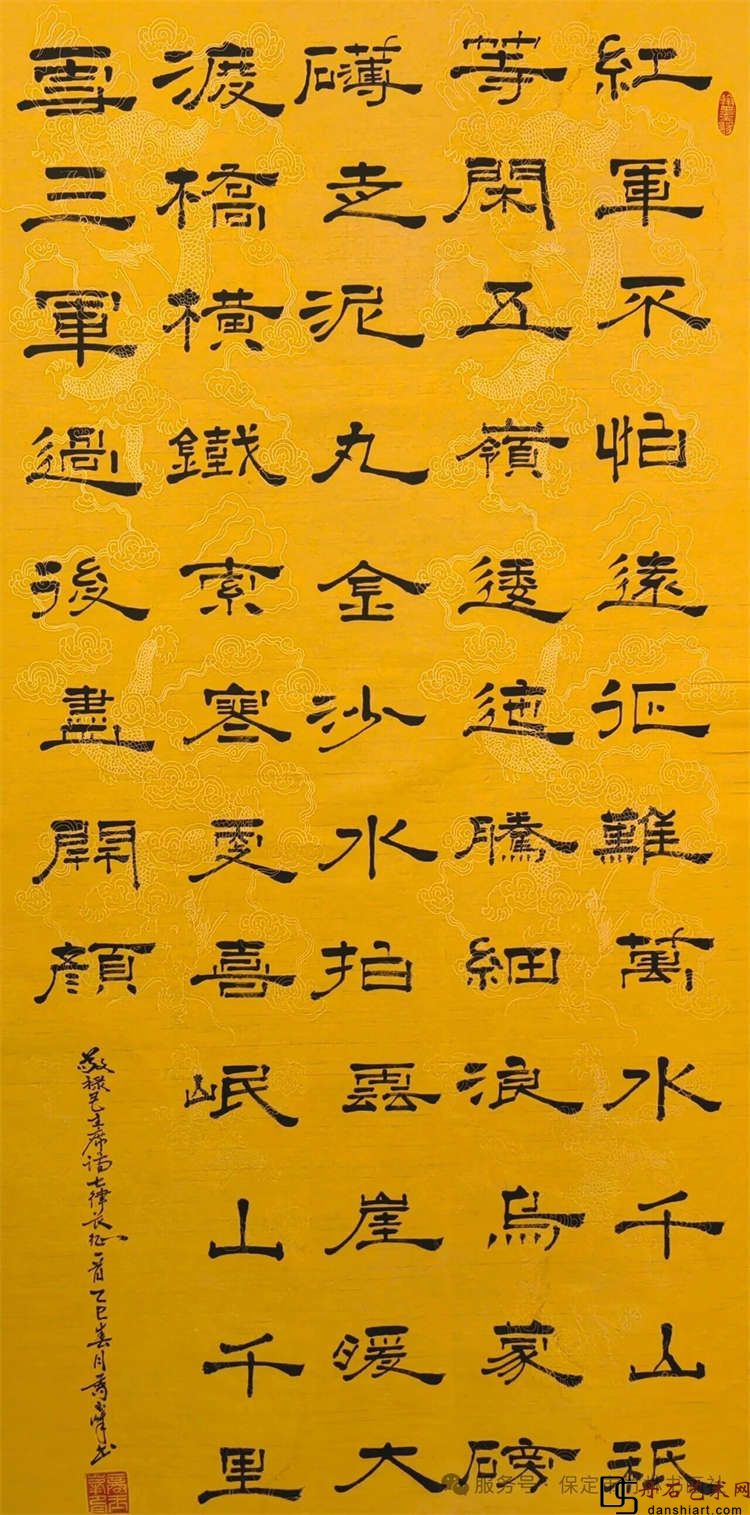 紅軍不怕遠征難萬水千山祇
等閑五嶺逶迤騰細浪烏蒙磅
礴走泥丸金沙水拍雲崖暖大
渡橋橫鐵索寒更喜岷山千里
雪三軍過後盡開顏
敬録毛主席詩七律長征一首乙巳春月
服务号·保定
丹石艺术网
danshiart.com